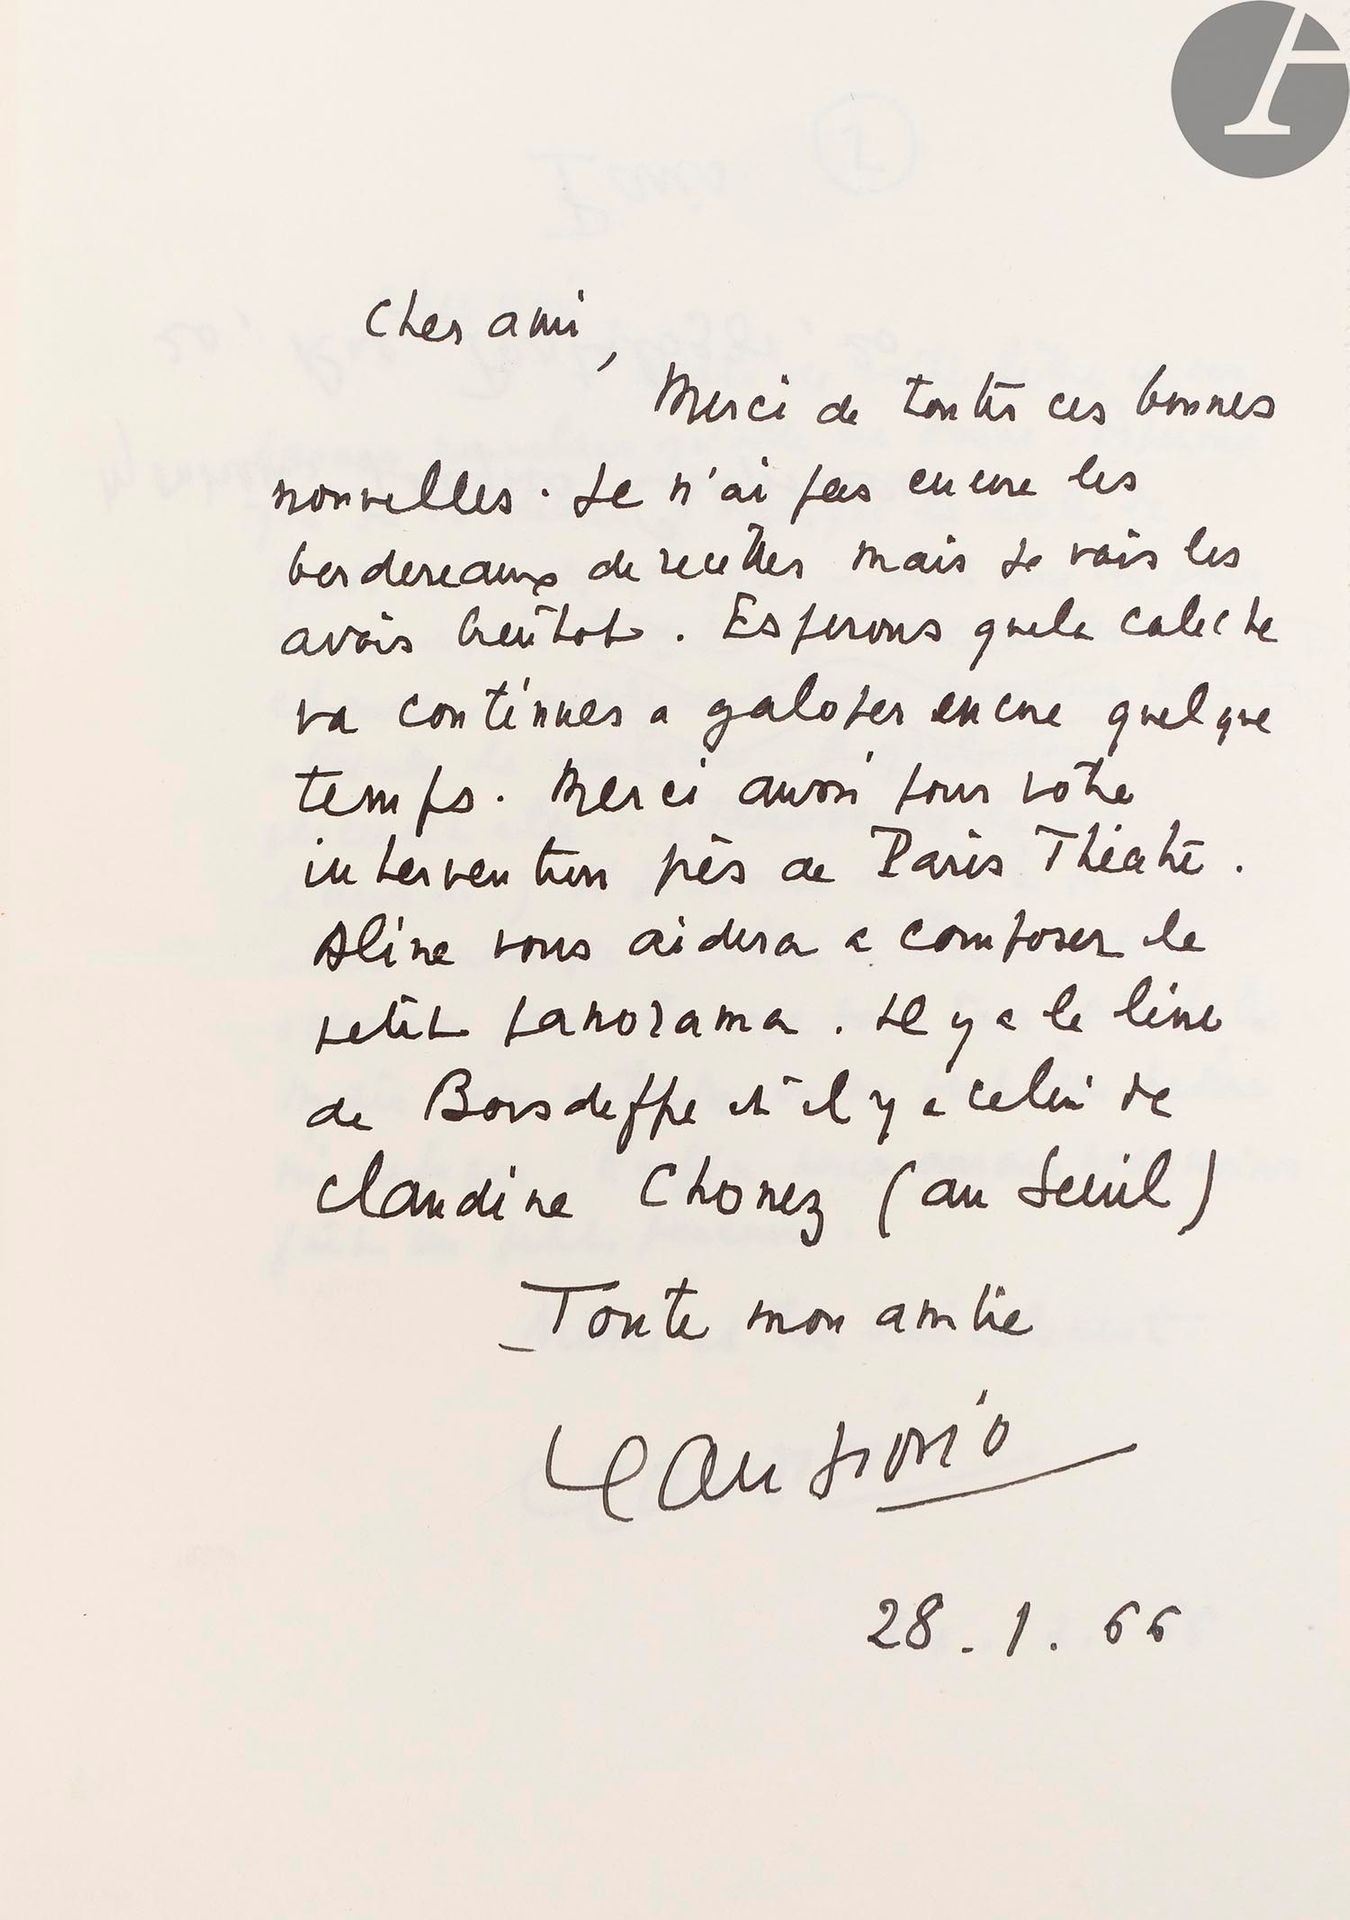 Cher ami,
Merci de toutes ces bonnes
nouvelles. Je n'ai pas encore les
bordereaux de recettes mais je vais les
avoir bientot. Esperons que la caleche
va continuer a galoper encore quelque
temps. Merci aussi pour votre
intervention près de Paris Théatre.
Aline vous aidera a composer le
petit panorama. Il y a le livre
de Boisdeffre et il y a celui de
Claudine Chonez (au Seuil)
Toute mon amitie
Jean Giono
28.1.66